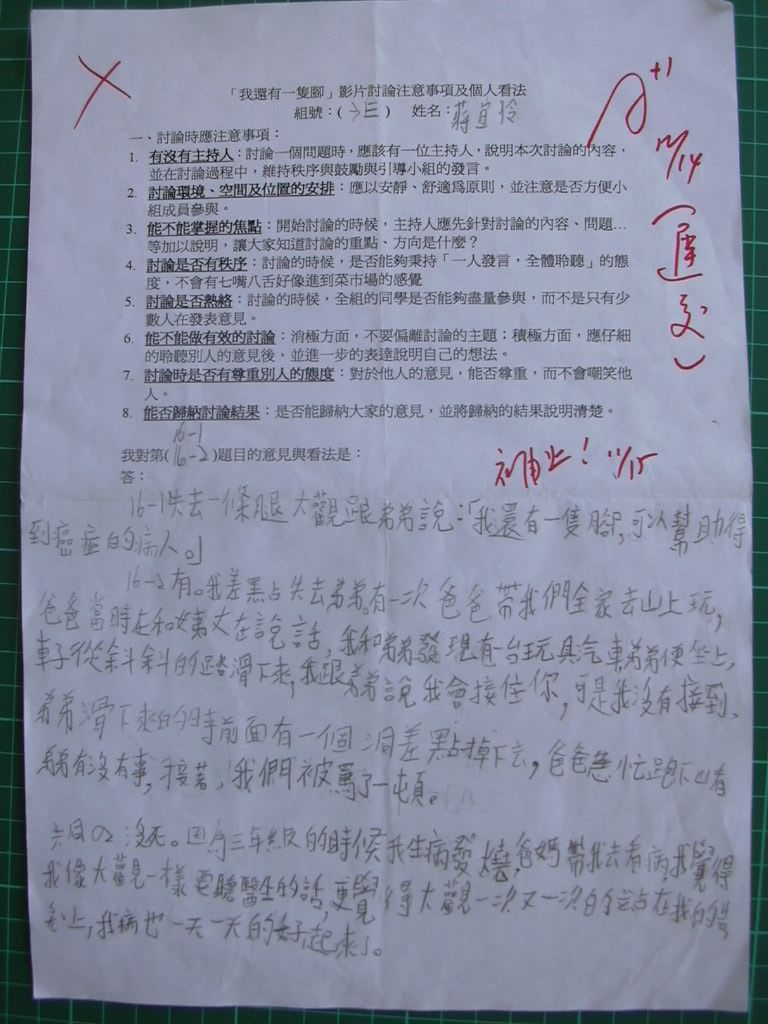 「我還有一隻腳」影片討論注意事項及個人看法
組號：( 三 ) 姓名：蔣宜伶
A+1
12/14
(遲交)
一、討論時應注意事項：
1. 有沒有主持人：討論一個問題時，應該有一位主持人，說明本次討論的內容，
並在討論過程中，維持秩序與鼓勵與引導小組的發言。
2. 討論環境、空間及位置的安排：應以安靜、舒適為原則，並注意是否方便小
組成員參與。
3. 能不能掌握的焦點：開始討論的時候，主持人應先針對討論的內容、問題…
等加以說明，讓大家知道討論的重點、方向是什麼？
4. 討論是否有秩序：討論的時候，是否能夠秉持「一人發言，全體聆聽」的態
度，不會有七嘴八舌好像進到菜市場的感覺
5. 討論是否熱絡：討論的時候，全組的同學是否能夠盡量參與，而不是只有少
數人在發表意見。
6. 能不能做有效的討論：消極方面，不要偏離討論的主題；積極方面，應仔細
的聆聽別人的意見後，並進一步的表達說明自己的想法。
7. 討論時是否有尊重別人的態度：對於他人的意見，能否尊重，而不會嘲笑他
人。
8. 能否歸納討論結果：是否能歸納大家的意見，並將歸納的結果說明清楚。
16-1
我對第(16-2)題目的意見與看法是：
答：
16-1失去一條腿大觀跟弟弟說：「我還有一隻腳，可以幫助得
到癌症的病人。」
16-2有。我差點失去弟弟。有一次爸爸帶我們全家去山上玩，
爸爸當時在和姨丈在說話，我和弟弟發現有一台玩具汽車弟弟便坐上，
車子從斜斜的路滑下來，我跟弟弟說我會接住你，可是我沒有接到、
弟弟滑下來的時前面有一個洞差點掉下去，爸爸急忙跑下山看
弟弟有沒有事，接著，我們被罵了一頓。
沒死。因為三年級的時候我生病發燒，爸媽帶我去看病，我覺得
我像大觀一樣要聽醫生的話，更覺得大觀一次又一次的站在我的
上，我病也一天一天的好起來了。